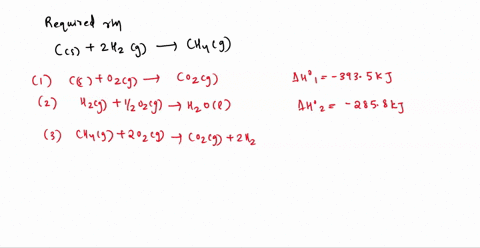 Required rxn
C(s) + 2H₂(g) → CH₄(g)
(1) C(s) + O₂(g) → CO₂(g) ΔH°₁ = -393.5 kJ
(2) H₂(g) + 1/2 O₂(g) → H₂O(l) ΔH°₂ = -285.8 kJ
(3) CH₄(g) + 2O₂(g) → CO₂(g) + 2H₂